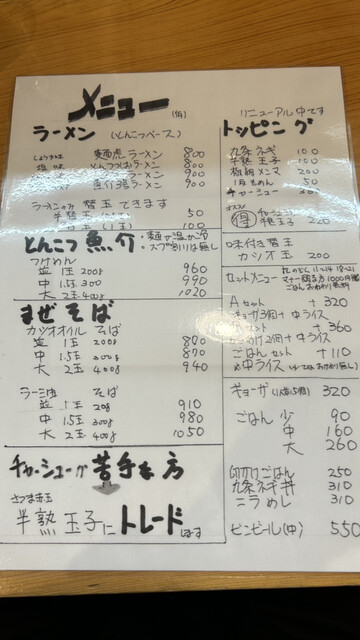 メニュー
ラーメン (とんこつベース)
麺鹿虎ラーメン 800
とんこつラーメン 800
ラーメン 900
魚介鶏ラーメン 900
ラーメンのみ 替玉できます
半替玉 50
替玉 (1玉) 100
とんこつ魚介
・麺や温か冷
・スープ割りは無し
つけめん
並 1玉 200g 960
中 1.5玉 300g 990
大 2玉 400g 1020
まぜそば
カツオオイル そば
並 1玉 200g 840
中 1.5玉 300g 890
大 2玉 400g 940
ラー油 そば
並 1玉 200g 910
中 1.5玉 300g 980
大 2玉 400g 1050
チャーシューが苦手な方
半熟玉子にトレード
リニューアル中です
トッピング
九条ネギ 100
半熟玉子 100
極細メンマ 200
のり 5枚 50
チャーシュー
味付き替玉
カツオ玉 200
セットメニュー
Aセット +320
ギョーザ3個+中ライス
セット +360
ごはんセット +110
中ライス
ギョーザ (1人前5個) 320
ごはん 少 90
中 160
大 260
卵かけごはん 250
九条ネギ丼 310
ニラめし 310
ビンビール(中) 550